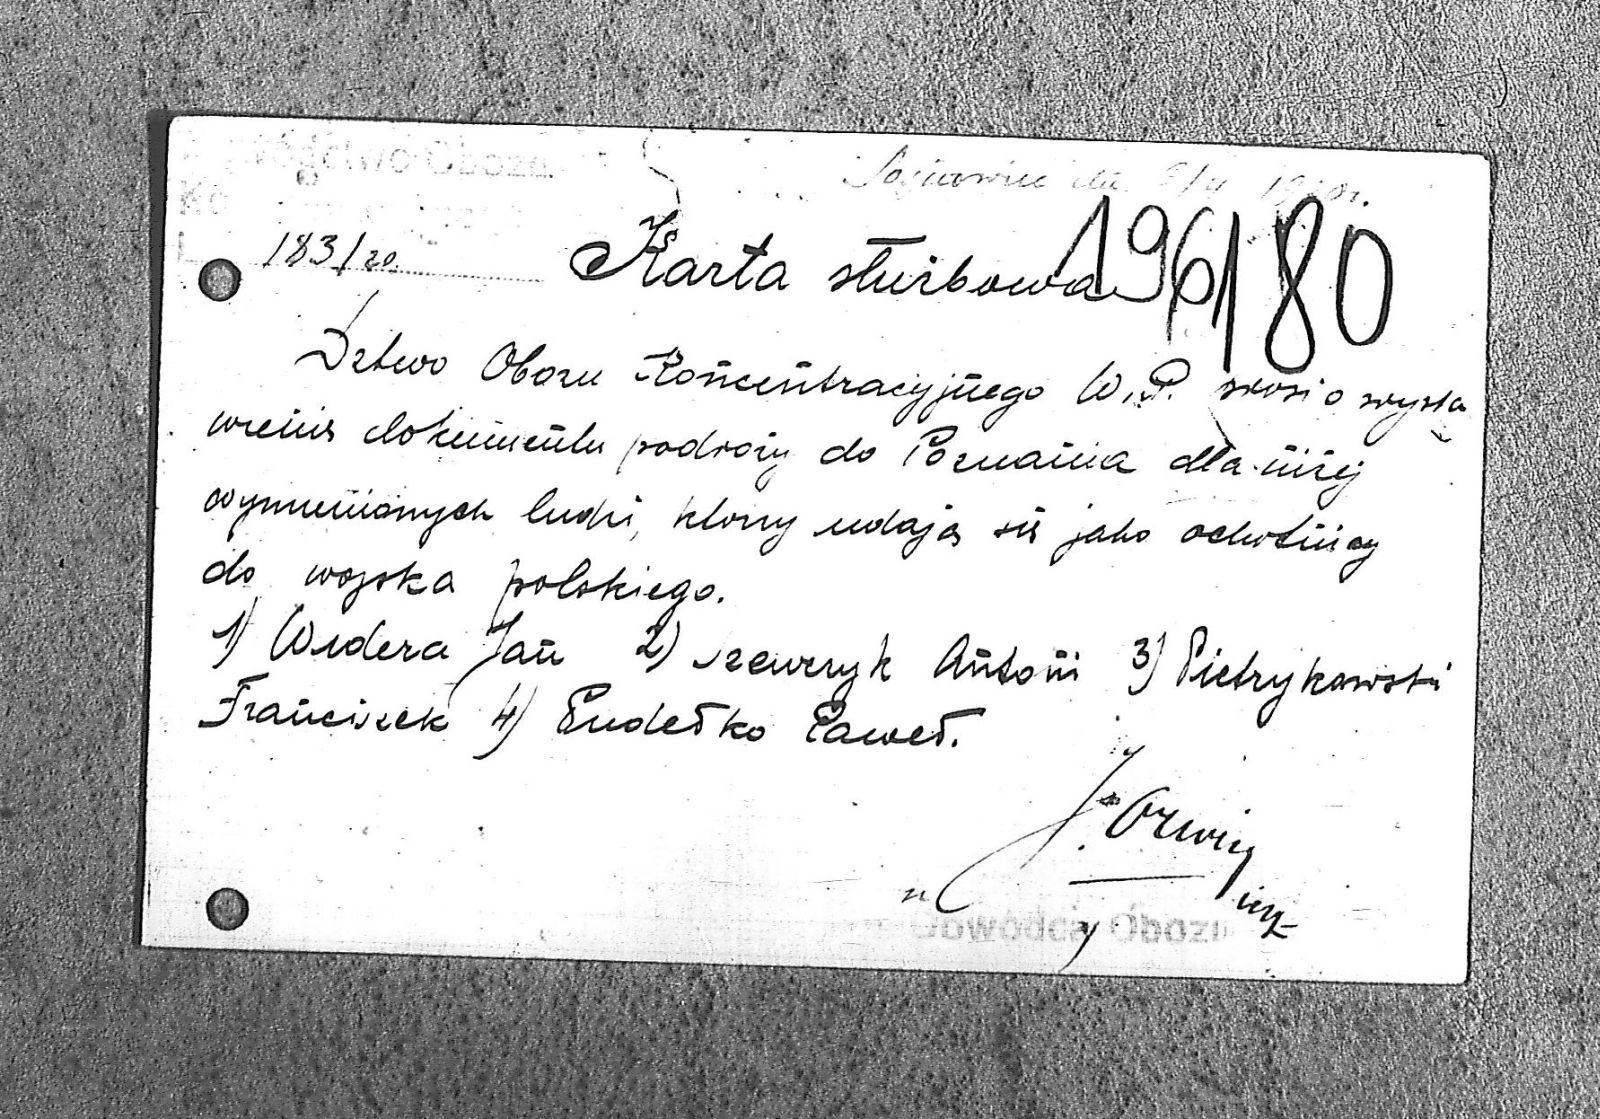 Dowództwo Obozu
183/20.
Karta służbowa 196/80
Dztwo Obozu Koncentracyjnego W.P. prosi o wysta
wienie dokumentu podróży do Poznania dla niżej
wymienionych ludzi, którzy udają się jako ochotnicy
do wojska polskiego.
1) Widera Jan 2) Szewczyk Antoni 3) Pietrykowski
Franciszek 4) Pudełko Paweł.
Dowódca Obozu